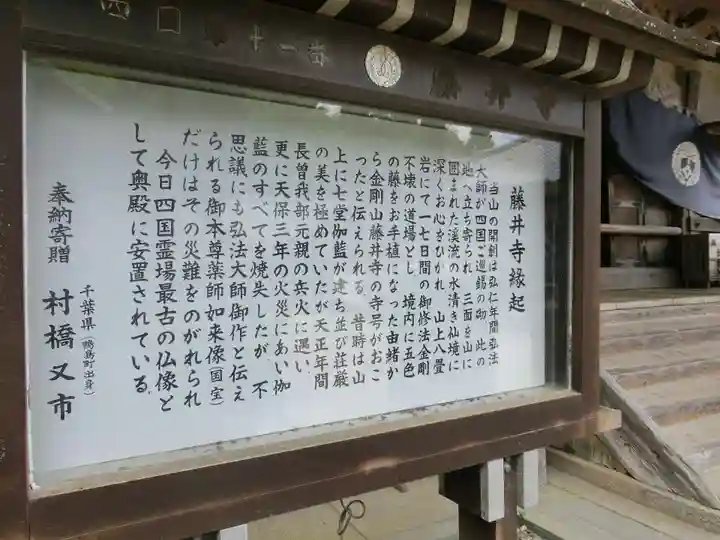 四国第十一番
藤井寺
藤井寺縁起
当山の開創は弘仁年間弘法
大師が四国ご巡錫の砌 此の
地へ立ち寄られ 三面を山に
囲まれた渓流の水清き仙境に
深くお心をひかれ 山上八畳
岩にて一七日間の御修法金剛
不壊の道場とし 境内に五色
の藤をお手植になった由緒か
ら金剛山藤井寺の寺号がおこ
ったと伝えられる 昔時は山
上に七堂伽藍が建ち並び荘厳
の美を極めていたが天正年間
長曽我部元親の兵火に遇い
更に天保三年の火災にあい伽
藍のすべてを焼失したが 不
思議にも弘法大師御作と伝え
られる御本尊薬師如来像(国宝)
だけはその災難をのがれられ
今日四国霊場最古の仏像と
して奥殿に安置されている
奉納寄贈 千葉県(鴨島町出身)
村橋又市